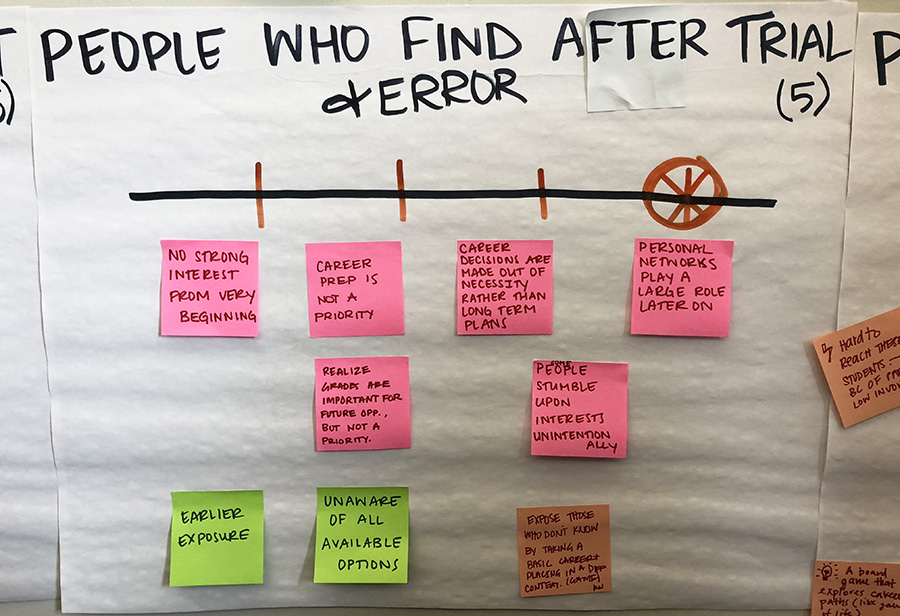 PEOPLE WHO FIND AFTER TRIAL
& ERROR
(5)
NO STRONG
INTEREST
FROM VERY
BEGINNING
CAREER
PREP IS
NOT A
PRIORITY
CAREER
DECISIONS ARE
MADE OUT OF
NECESSITY
RATHER THAN
LONG TERM
PLANS
PERSONAL
NETWORKS
PLAY A
LARGE ROLE
LATER ON
REALIZE
GRADES ARE
IMPORTANT FOR
FUTURE OPP.,
BUT NOT A
PRIORITY.
SOME
PEOPLE
STUMBLE
UPON
INTERESTS
UNINTENTION
ALLY
Hard to
REACH THESE
STUDENTS
BC OF
LOW
EARLIER
EXPOSURE
UNAWARE
OF ALL
AVAILABLE
OPTIONS
EXPOSE THOSE
WHO DON'T KNOW
BY TAKING A
BASIC CAREER &
PLACING IN A DIFF
CONTEXT. (GAME)
A board
game that
explores
paths (like
of life)
P